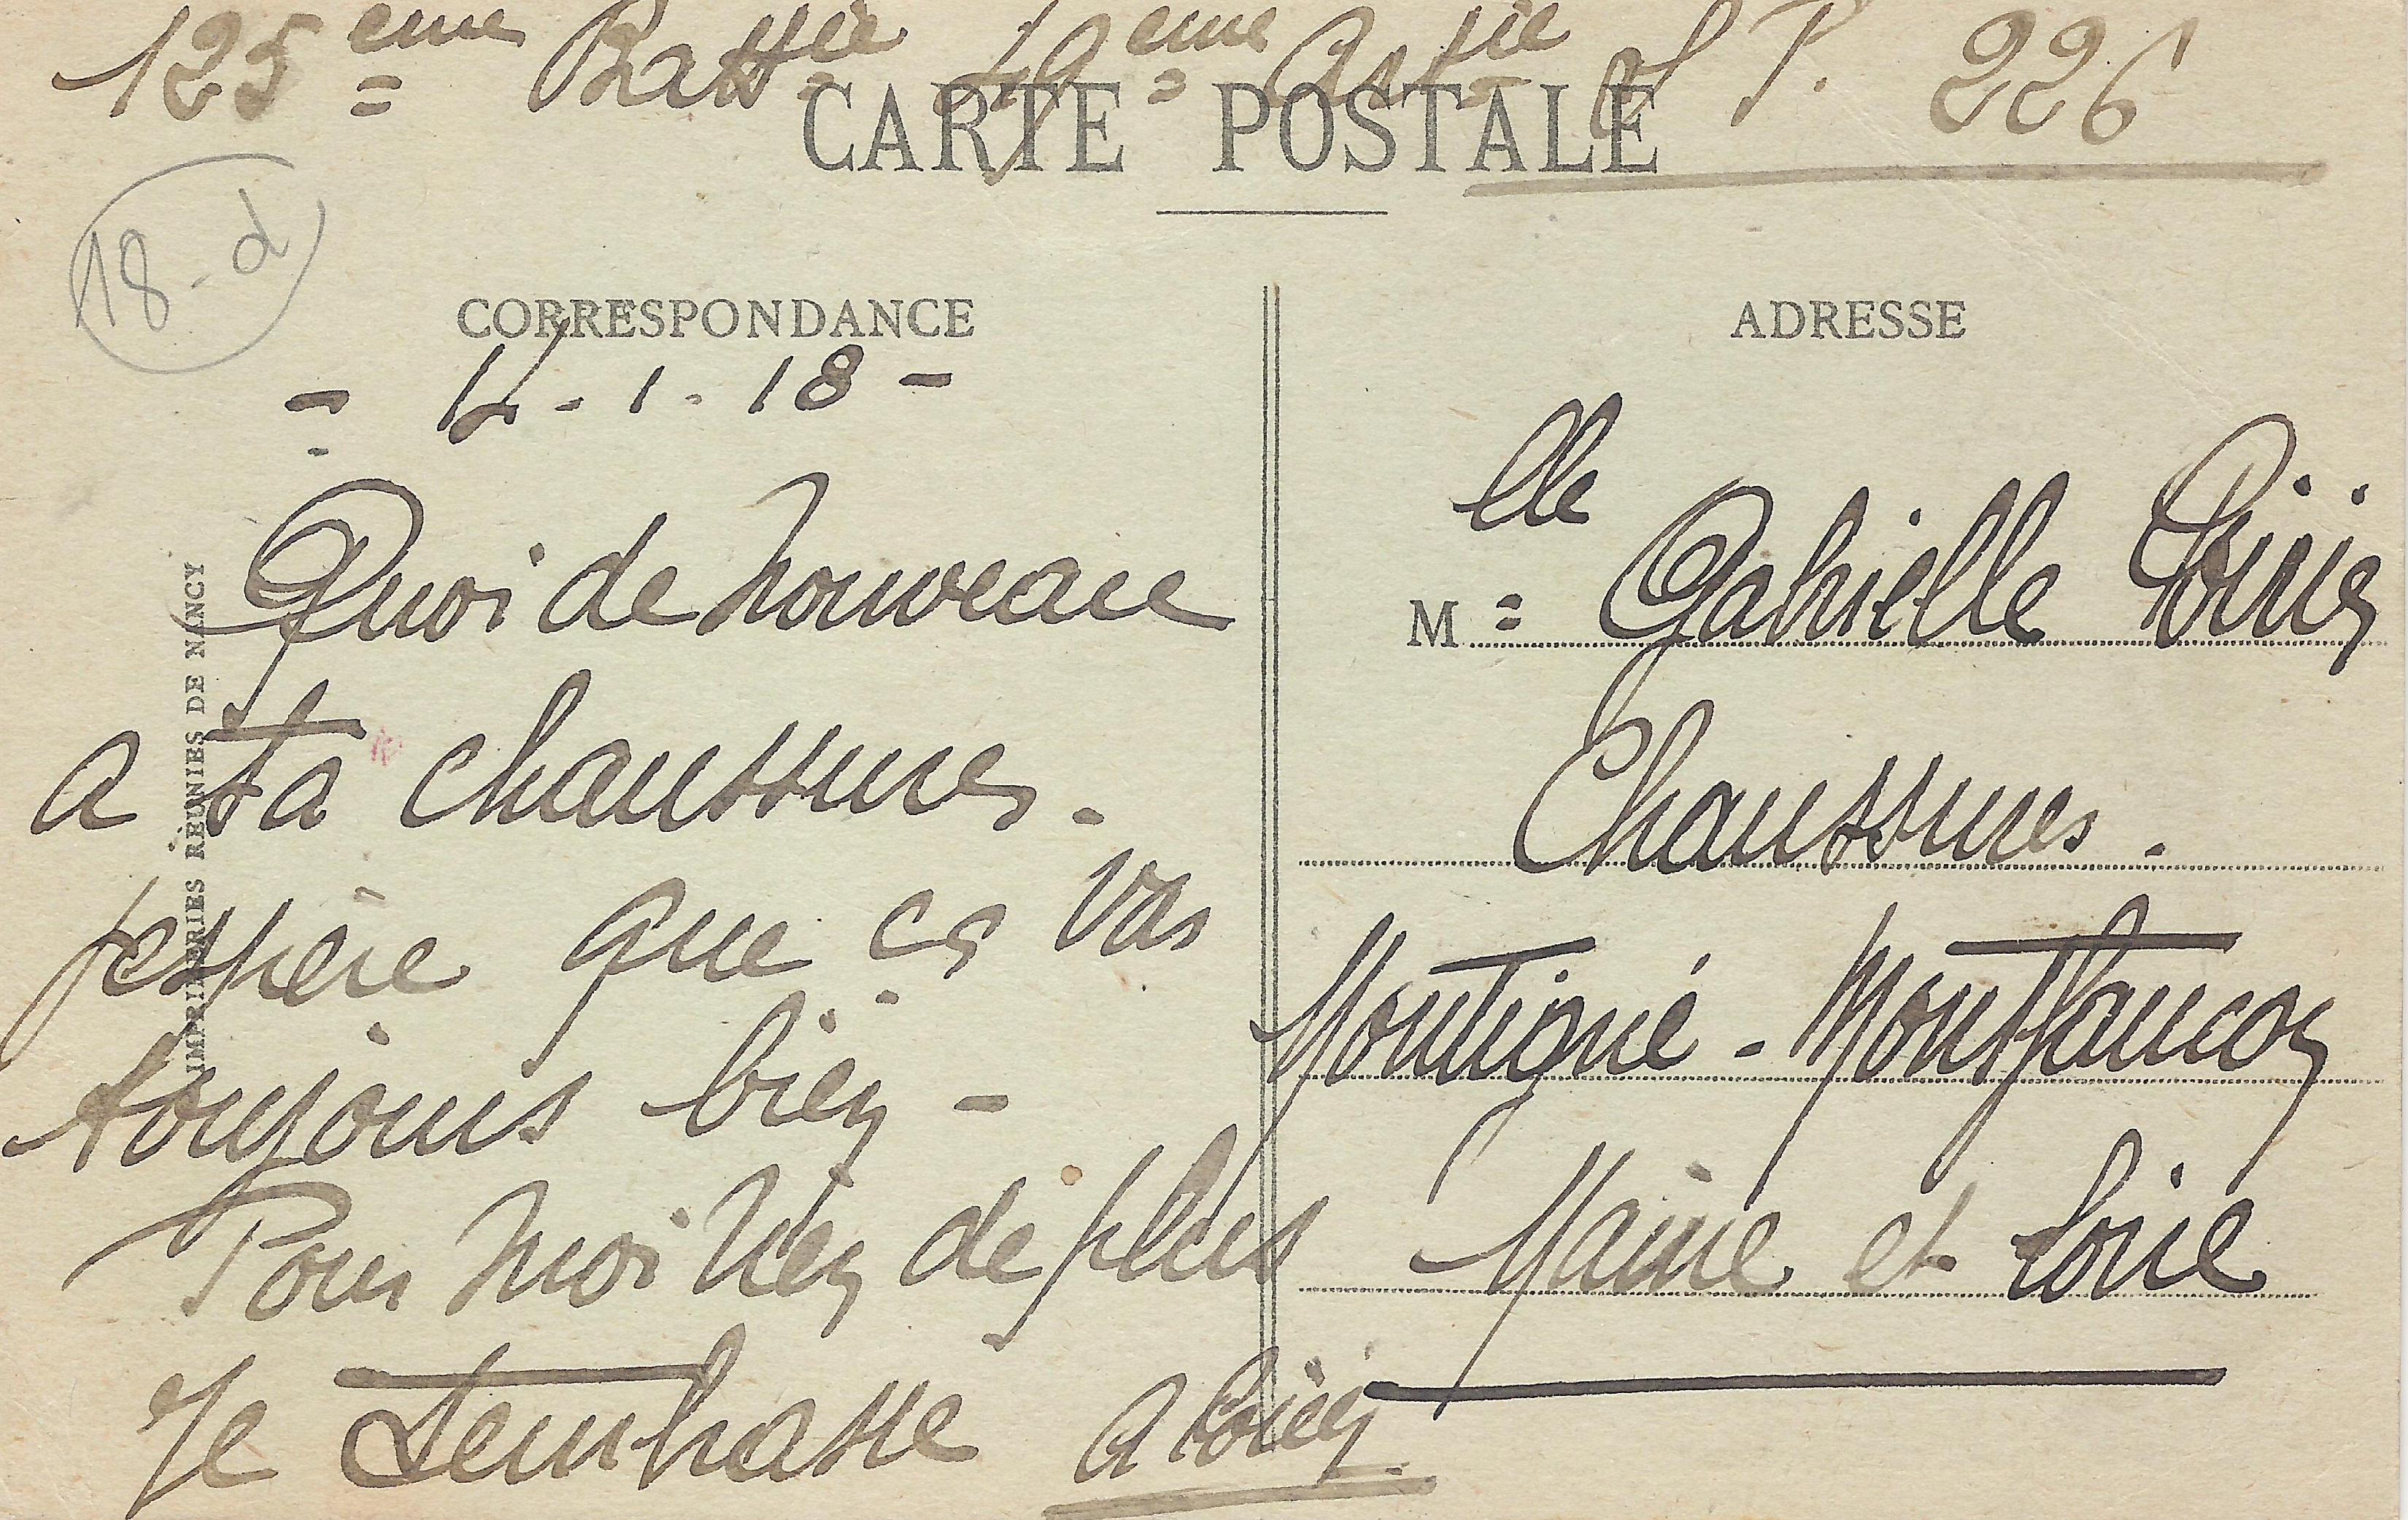 125ème Battie 49ème Artie S P. 226
CARTE POSTALE
18-d
CORRESPONDANCE
- 4-1.18-
Quoi de nouveau
a ta chaussures.
jespère que ça vas
toujours bien -
Pour moi rien de plus
Je t'embrasse
ADRESSE
Melle Gabrielle
Chaussures.
Montigné - Montfaucon
Maine et Loire
IMPRIMERIES RÉUNIES DE NANCY